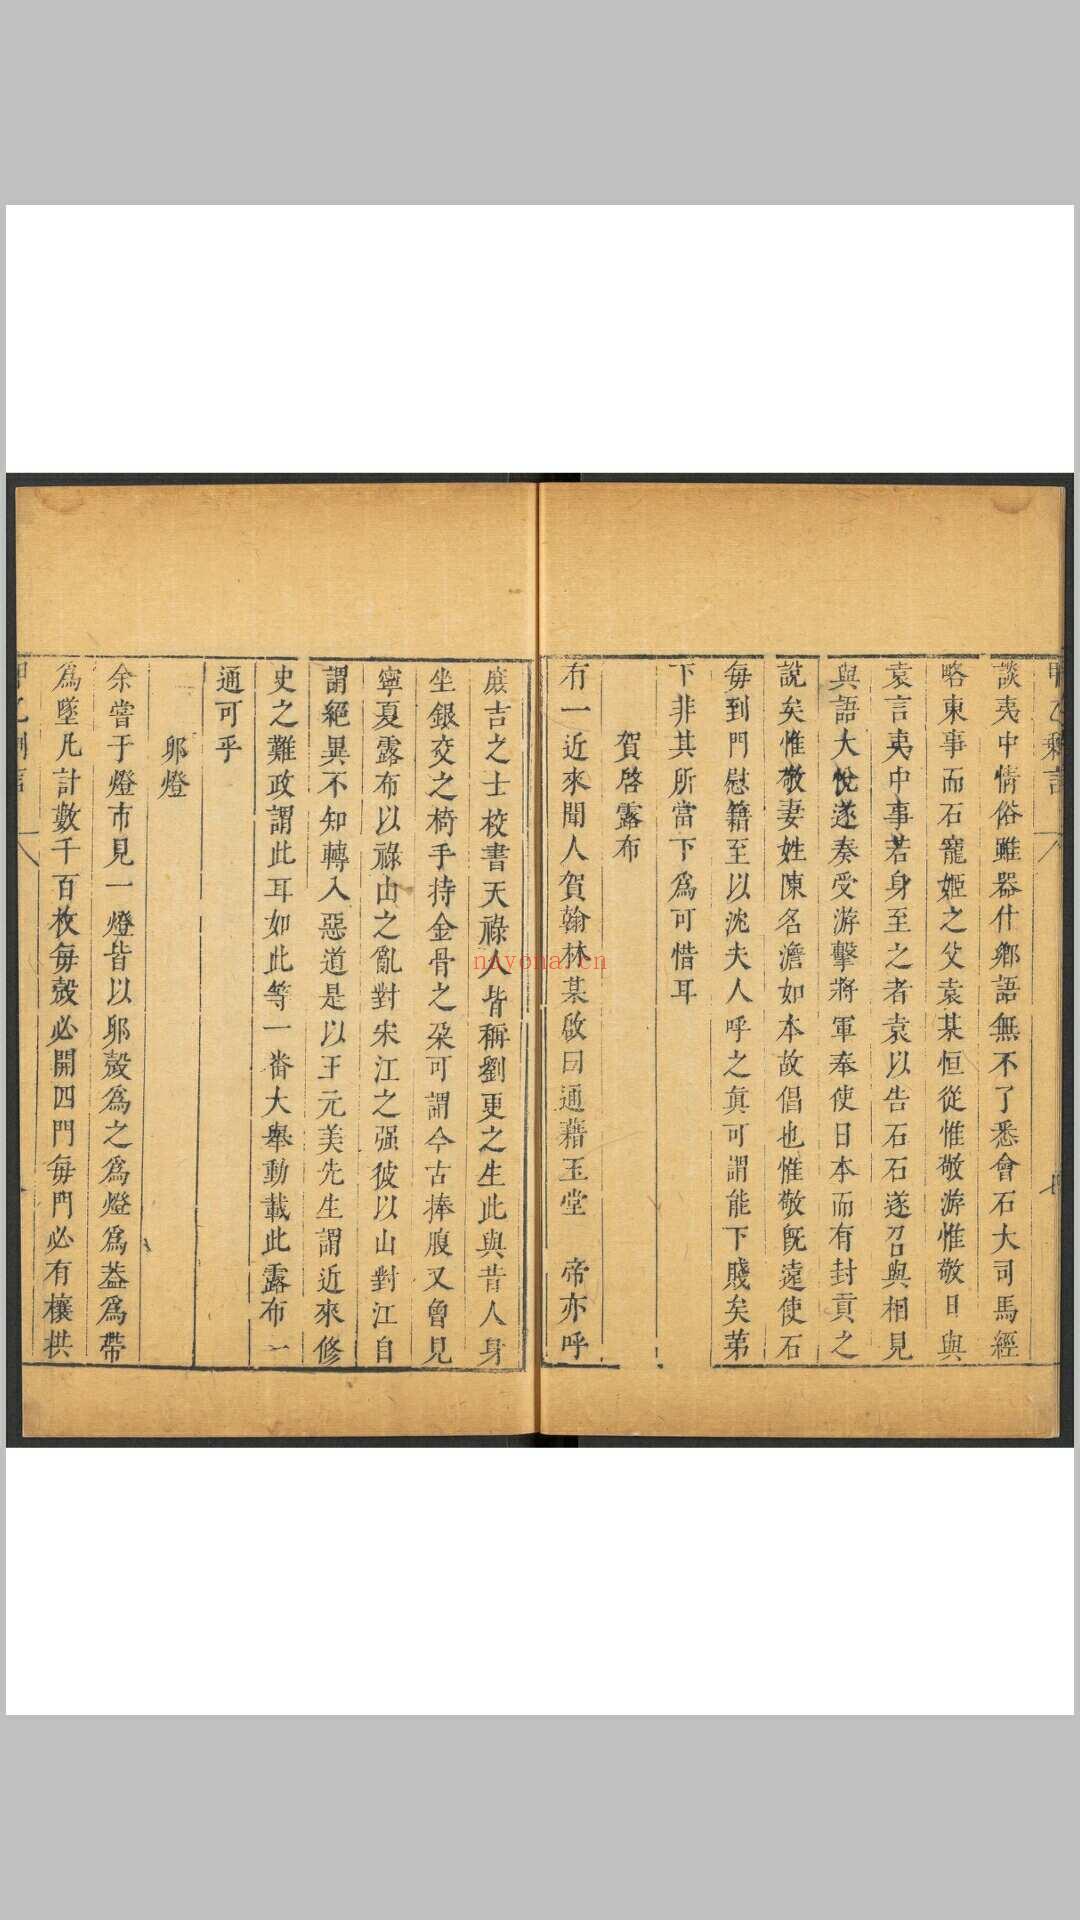 談夷中情俗雖器什鄉語無不了悉會石大司馬經
略東事而石寵姬之父袁某恒從惟敬游惟敬日與
袁言夷中事若身至之者袁以告石石遂召與相見
與語大悅遂奏受游擊將軍奉使日本而有封貢之
說矣惟敬妻姓陳名澹如本故倡也惟敬既遠使石
每到門慰籍至以沈夫人呼之真可謂能下賤矣第
下非其所當下為可惜耳
賀啓露布
有一近來聞人賀翰林某啟曰通藉玉堂 帝亦呼
庶吉之士校書天祿人皆稱劉更之生此與昔人身
坐銀交之椅手持金骨之朶可謂今古捧腹又曾見
寧夏露布以祿山之亂對宋江之强彼以山對江自
謂絕異不知轉入惡道是以王元美先生謂近來修
史之難政謂此耳如此等一番大舉動載此露布一
通可乎
卵燈
余嘗于燈市見一燈皆以卵殼爲之爲燈爲葢爲帶
爲墜凡計數千百枚每殼必開四門每門必有欀拱
nayona.cn